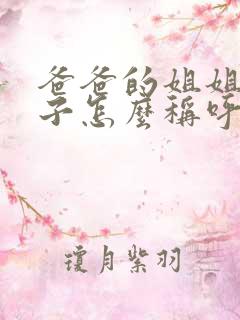 爸爸的姐姐
子怎麼稱呼
瓊月紫羽